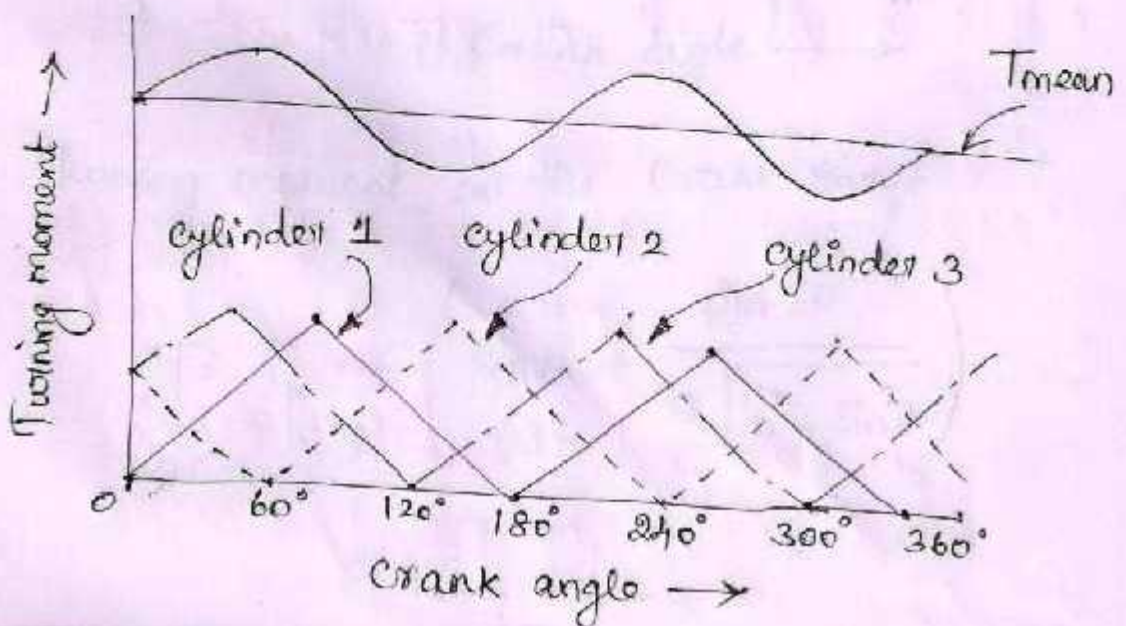 Tmean
Turning moment →
cylinder 1
cylinder 2
cylinder 3
0
60°
120°
180°
240°
300°
360°
Crank angle →